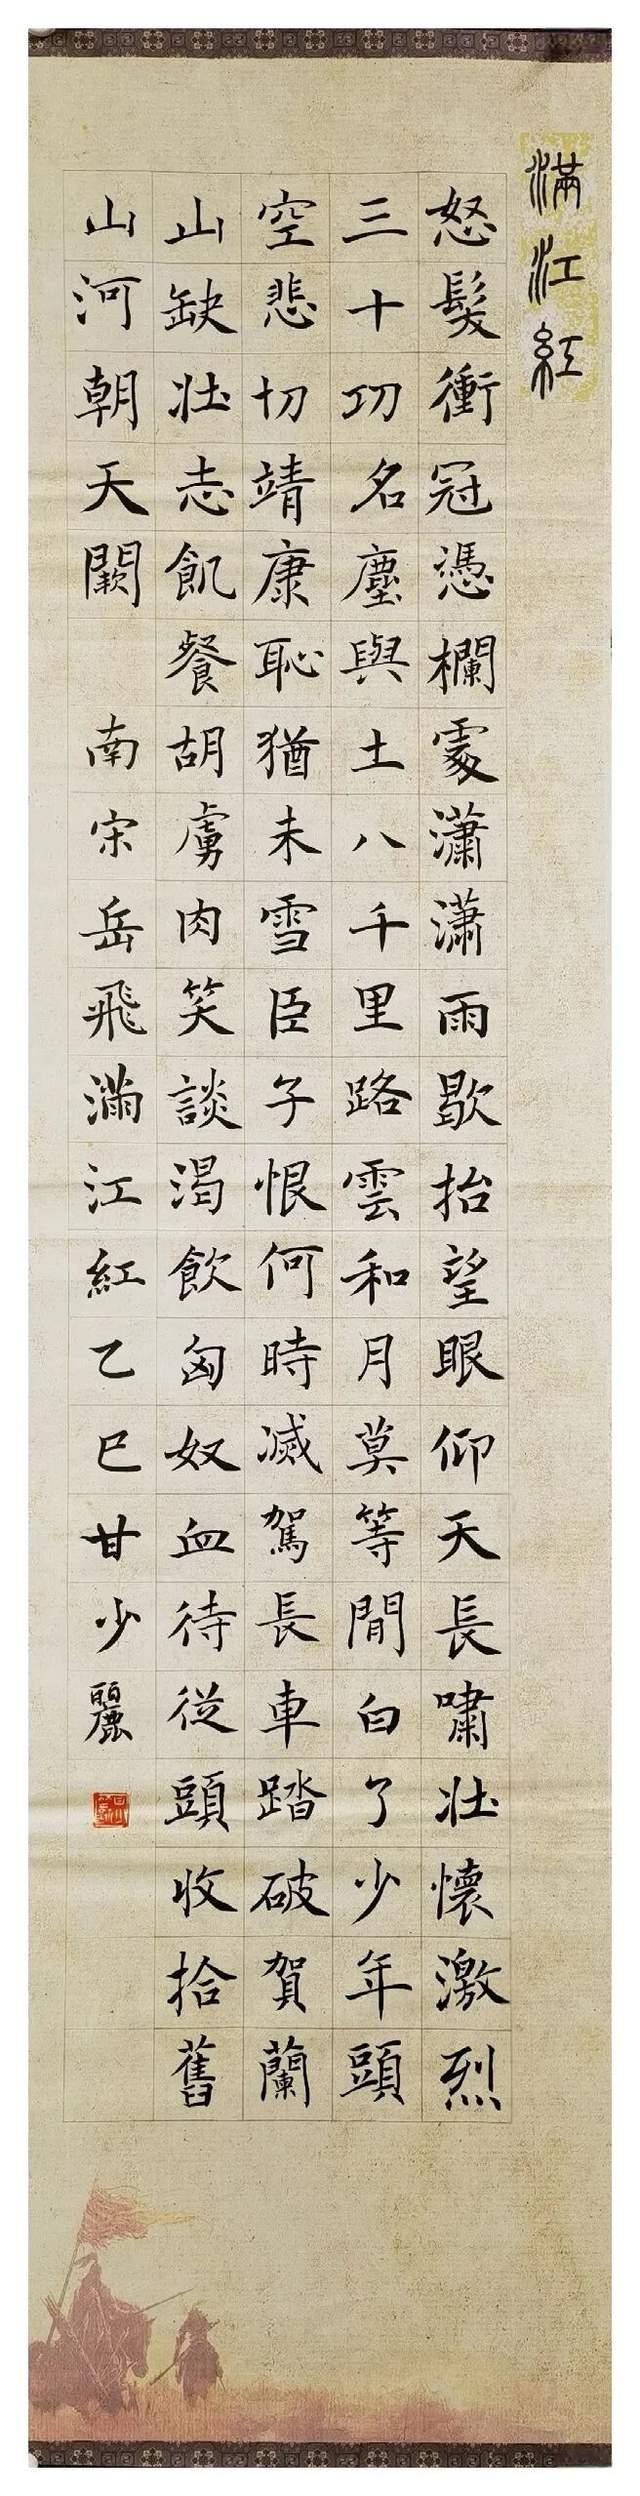 滿江紅
怒髮衝冠憑欄處瀟瀟雨歇抬望眼仰天長嘯壯懷激烈
三十功名塵與土八千里路雲和月莫等閒白了少年頭
空悲切靖康恥猶未雪臣子恨何時滅駕長車踏破賀蘭
山缺壯志飢餐胡虜肉笑談渴飲匈奴血待從頭收拾舊
山河朝天闕 南宋岳飛滿江紅乙巳甘少麗